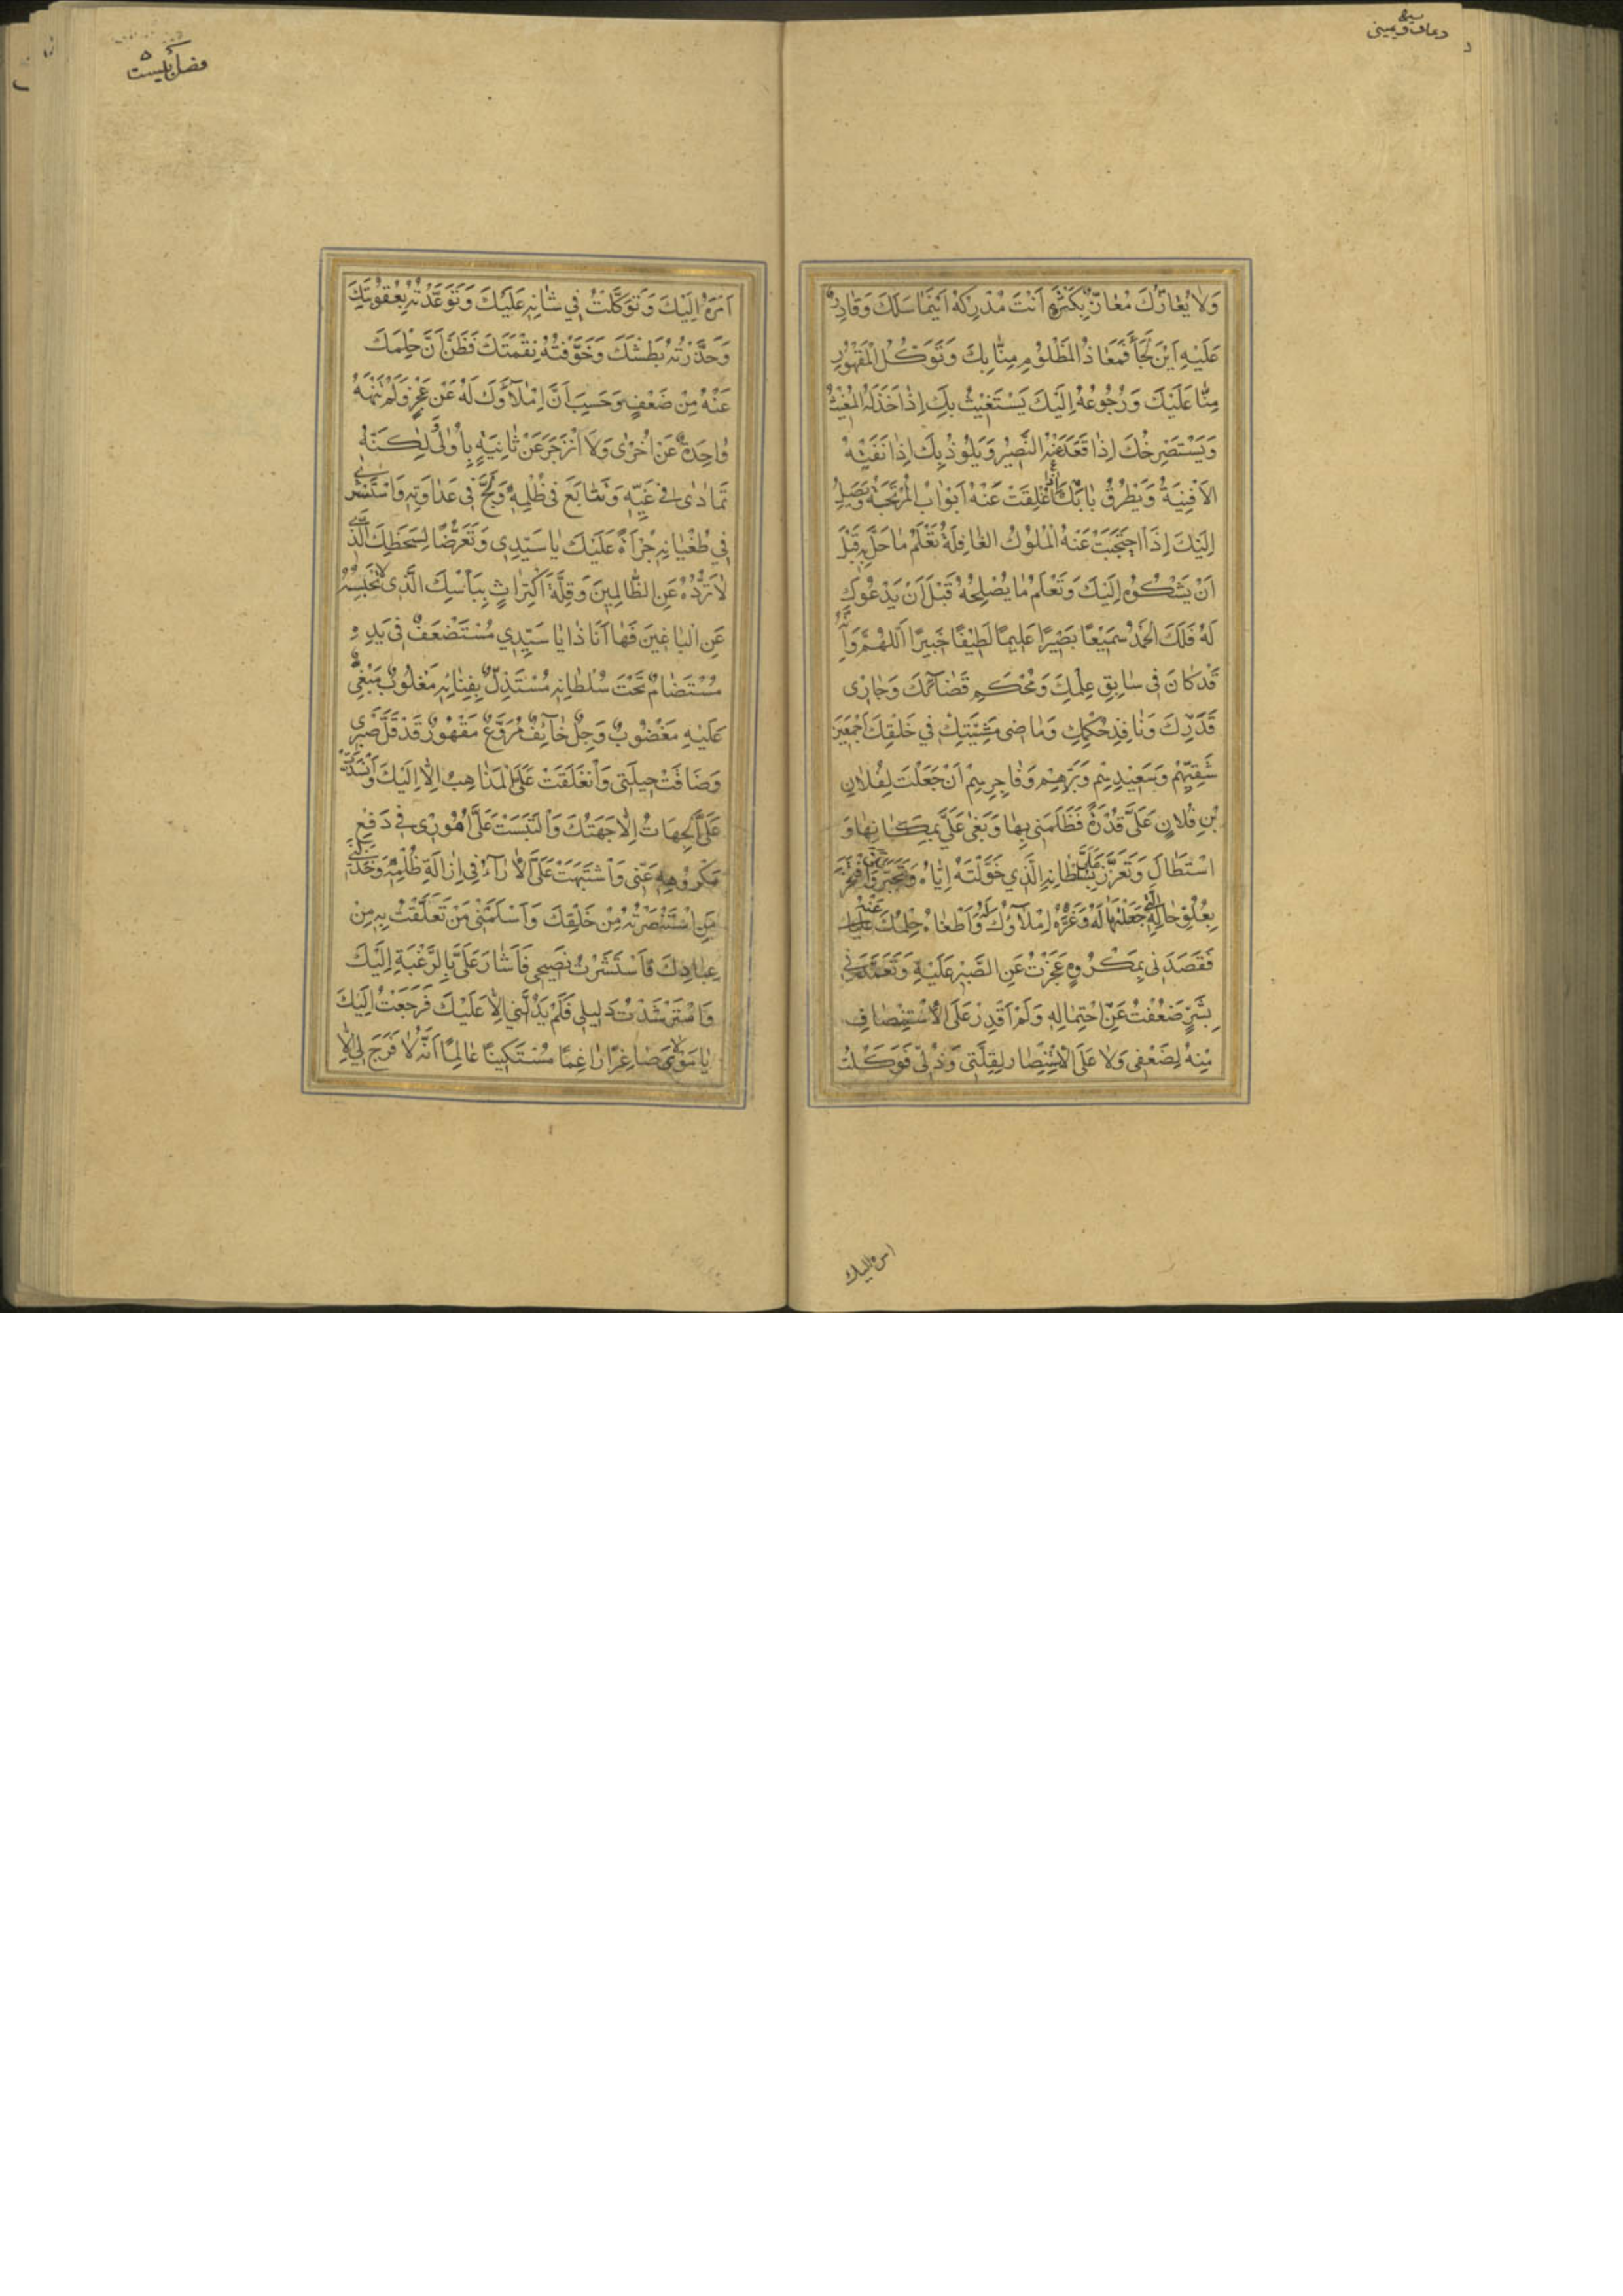 دعای سیفی یمینی
وَلَا يُعَازُّكَ مُعَازٌّ بِكَثْرَةٍ اَنْتَ مُدْرِكُهُ اَيْنَمَا سَلَكَ وَقَادِرٌ
عَلَيْهِ اَيْنَ لَجَأَ فَمَعَاذُ الْمَظْلُومِ مِنَّا بِكَ وَتَوَكُّلُ الْمَقْهُورِ
مِنَّا عَلَيْكَ وَرُجُوعُهُ اِلَيْكَ يَسْتَغِيثُ بِكَ اِذَا خَذَلَهُ الْمُغِيثُ
وَيَسْتَصْرِخُكَ اِذَا قَعَدَ عَنْهُ النَّصِيرُ وَيَلُوذُ بِكَ اِذَا نَفَتْهُ
الْاَفْنِيَةُ وَيَطْرُقُ بَابَكَ اِذَا غُلِقَتْ عَنْهُ اَبْوَابُ الْمُرْتَجَةُ يَصِلُ
اِلَيْكَ اِذَا احْتَجَبَتْ عَنْهُ الْمُلُوكُ الْغَافِلَةُ تَعْلَمُ مَا حَلَّ بِهِ قَبْلَ
اَنْ يَشْكُوهُ اِلَيْكَ وَتَعْلَمُ مَا يُصْلِحُهُ قَبْلَ اَنْ يَدْعُوكَ
لَهُ فَلَكَ الْحَمْدُ سَمِيعًا بَصِيرًا عَلِيمًا لَطِيفًا خَبِيرًا اَللّٰهُمَّ وَاَنَّهُ
قَدْ كَانَ فِى سَابِقِ عِلْمِكَ وَمُحْكَمِ قَضَائِكَ وَجَارِى
قَدَرِكَ وَنَافِذِ حُكْمِكَ وَمَاضِى مَشِيَّتِكَ فِي خَلْقِكَ اَجْمَعِينَ
شَقِيِّهِمْ وَسَعِيدِهِمْ وَبَرِّهِمْ وَفَاجِرِهِمْ اَنْ جَعَلْتَ لِفُلَانِ
بْنِ فُلَانٍ عَلَىَّ قُدْرَةً فَظَلَمَنِى بِهَا وَبَغَى عَلَىَّ بِمَكَانِهَا وَ
اسْتَطَالَ وَتَعَزَّزَ عَلَىَّ بِسُلْطَانِهِ الَّذِي خَوَّلْتَهُ اِيَّاهُ وَتَجَبَّرَ وَافْتَخَرَ
بِعُلُوِّ حَالِهِ الَّتِى جَعَلْتَهَا لَهُ وَغَرَّهُ اِمْلَاؤُكَ لَهُ وَاَطْغَاهُ حِلْمُكَ عَنْهُ
فَقَصَدَنِى بِمَكْرُوهٍ عَجَزْتُ عَنِ الصَّبْرِ عَلَيْهِ وَتَعَمَّدَنِى
بِشَرٍّ ضَعُفْتُ عَنِ احْتِمَالِهِ وَلَمْ اَقْدِرْ عَلَى الْاِسْتِنْصَافِ
مِنْهُ لِضَعْفِى وَلَا عَلَى الْاِنْتِصَارِ لِقِلَّتِى وَذُلِّى فَوَكَلْتُ
امره اليك
اَمْرَهُ اِلَيْكَ وَتَوَكَّلْتُ فِي شَانِهِ عَلَيْكَ وَتَوَعَّدْتُهُ بِعُقُوبَتِكَ
وَحَذَّرْتُهُ بَطْشَكَ وَخَوَّفْتُهُ نِقْمَتَكَ فَظَنَّ اَنَّ حِلْمَكَ
عَنْهُ مِنْ ضَعْفٍ وَحَسِبَ اَنَّ اِمْلَاؤَكَ لَهُ عَنْ عَجْزٍ وَلَمْ تَنْهَهُ
وَاحِدَةٌ عَنْ اُخْرٰى وَلَا اَنْزَجَرَ عَنْ ثَانِيَةٍ بِاُولٰى لٰكِنَّهُ
تَمَادٰى فِى غَيِّهِ وَتَتَابَعَ فِى ظُلْمِهِ وَلَجَّ فِى عَدَاوَتِهِ وَاسْتَشْرٰى
فِي طُغْيَانِهِ جُرْأَةً عَلَيْكَ يَا سَيِّدِى وَتَعَرُّضًا لِسَخَطِكَ الَّذِى
لَا تَرُدُّهُ عَنِ الظَّالِمِينَ وَقِلَّةَ اكْتِرَاثٍ بِبَأْسِكَ الَّذِى لَا تَحْبِسُهُ
عَنِ الْبَاغِينَ فَهَا اَنَا ذَا يَا سَيِّدِي مُسْتَضْعَفٌ فِى يَدِهِ
مُسْتَضَامٌ تَحْتَ سُلْطَانِهِ مُسْتَذِلٌّ بِفِنَائِهِ مَغْلُوبٌ مَبْغِىٌّ
عَلَيْهِ مَغْضُوبٌ وَجِلٌ خَائِفٌ مُرَوَّعٌ مَقْهُورٌ قَدْ قَلَّ صَبْرِى
وَضَاقَتْ حِيلَتِى وَانْغَلَقَتْ عَلَىَّ الْمَذَاهِبُ اِلَّا اِلَيْكَ وَانْسَدَّتْ
عَلَىَّ الْجِهَاتُ اِلَّا جِهَتُكَ وَالْتَبَسَتْ عَلَىَّ اُمُورِى فِى دَفْعِ
مَكْرُوهِهِ عَنِّى وَاشْتَبَهَتْ عَلَىَّ الْاٰرَاءُ فِى اِزَالَةِ ظُلْمِهِ وَخَذَلَنِى
مَنِ اسْتَنْصَرْتُهُ مِنْ خَلْقِكَ وَاَسْلَمَنِى مَنْ تَعَلَّقْتُ بِهِ مِنْ
عِبَادِكَ فَاسْتَشَرْتُ نَصِيحِى فَاَشَارَ عَلَىَّ بِالرَّغْبَةِ اِلَيْكَ
وَاسْتَرْشَدْتُ دَلِيلِى فَلَمْ يَدُلَّنِي اِلَّا عَلَيْكَ فَرَجَعْتُ اِلَيْكَ
يَا مَوْلَاىَ صَاغِرًا رَاغِمًا مُسْتَكِينًا عَالِمًا اَنَّهُ لَا فَرَجَ لِى اِلَّا